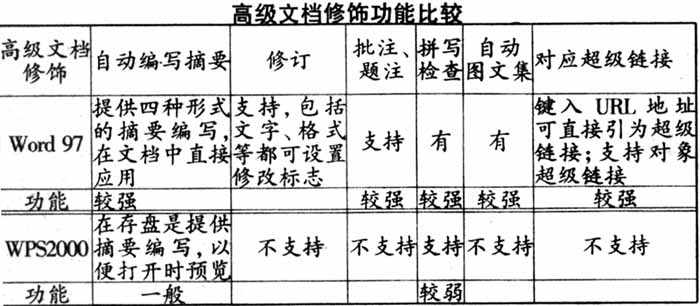 高级文档修饰功能比较
高级文档修饰 自动编写摘要 修订 批注、题注 拼写检查 自动图文集 对应超级链接
Word 97 提供四种形式的摘要编写，在文档中直接应用 支持，包括文字、格式等都可设置修改标志 支持 有 有 键入 URL 地址可直接引为超级链接；支持对象超级链接
功能 较强 较强 较强 较强 较强
WPS2000 在存盘是提供摘要编写，以便打开时预览 不支持 不支持 支持 不支持 不支持
功能 一般 较弱